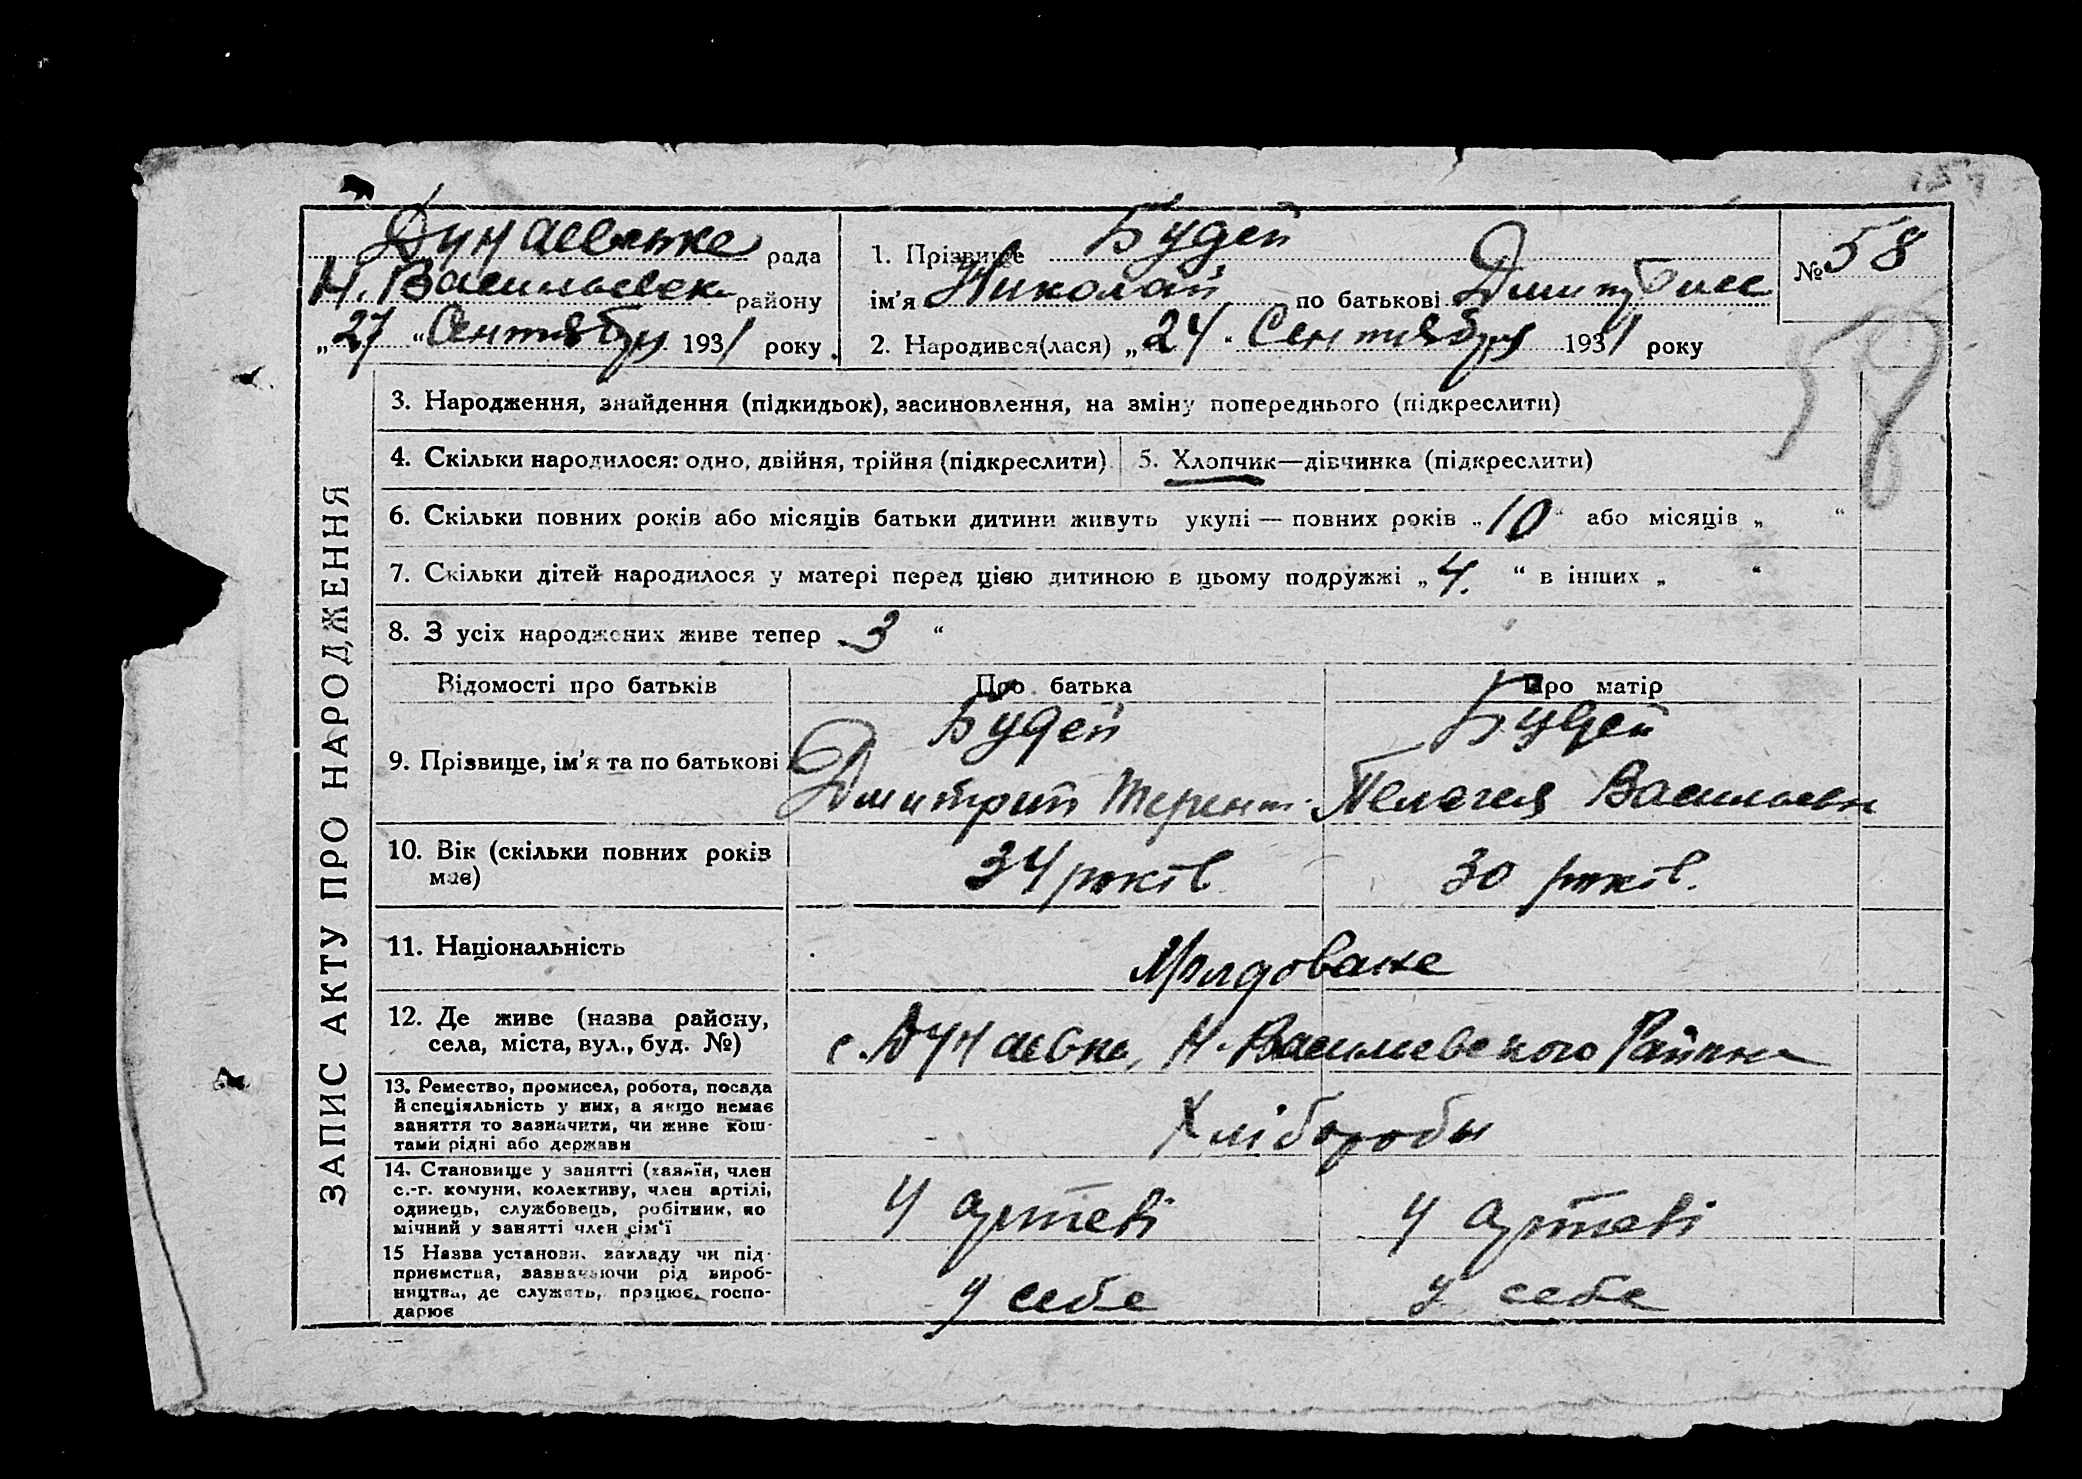 Дунаевське рада
Н. Васильевск району
„27“ Сентября 1931 року.
1. Прізвище Будей
ім’я Николай по батькові
2. Народився(лася) „24“ Сентября 1931 року
№ 58
58
ЗАПИС АКТУ ПРО НАРОДЖЕННЯ
3. Народження, знайдення (підкидьок), засиновлення, на зміну попереднього (підкреслити)
4. Скільки народилося: одно, двійня, трійня (підкреслити)
5. Хлопчик—дівчинка (підкреслити)
6. Скільки повних років або місяців батьки дитини живуть укупі — повних років „10“ або місяців „ “
7. Скільки дітей народилося у матері перед цією дитиною в цьому подружжі „4.“ в інших „ “
8. З усіх народжених живе тепер 3 “
Відомості про батьків Про батька Про матір
9. Прізвище, ім’я та по батькові
Будей
Дмитрий Терент.
Будей
Пелагея Васильевн
10. Вік (скільки повних років
має)
34 років
30 років.
11. Національність
Молдоване
12. Де живе (назва району,
села, міста, вул., буд. №)
с. Дунаевка, Н-Васильевского Района
13. Ремество, промисел, робота, посада
й спеціяльність у них, а якщо немає
заняття то зазначити, чи живе кош-
тами рідні або держави
Хлібороби
14. Становище у занятті (хазяїн, член
с.-г. комуни, колективу, член артілі,
одинець, службовець, робітник, по
мічний у занятті член сім’ї
У артелі
У артелі
15 Назва установи, закладу чи під-
приємства, зазначаючи рід вироб-
ництва, де служить, працює, госпо-
дарює
у себе
у себе